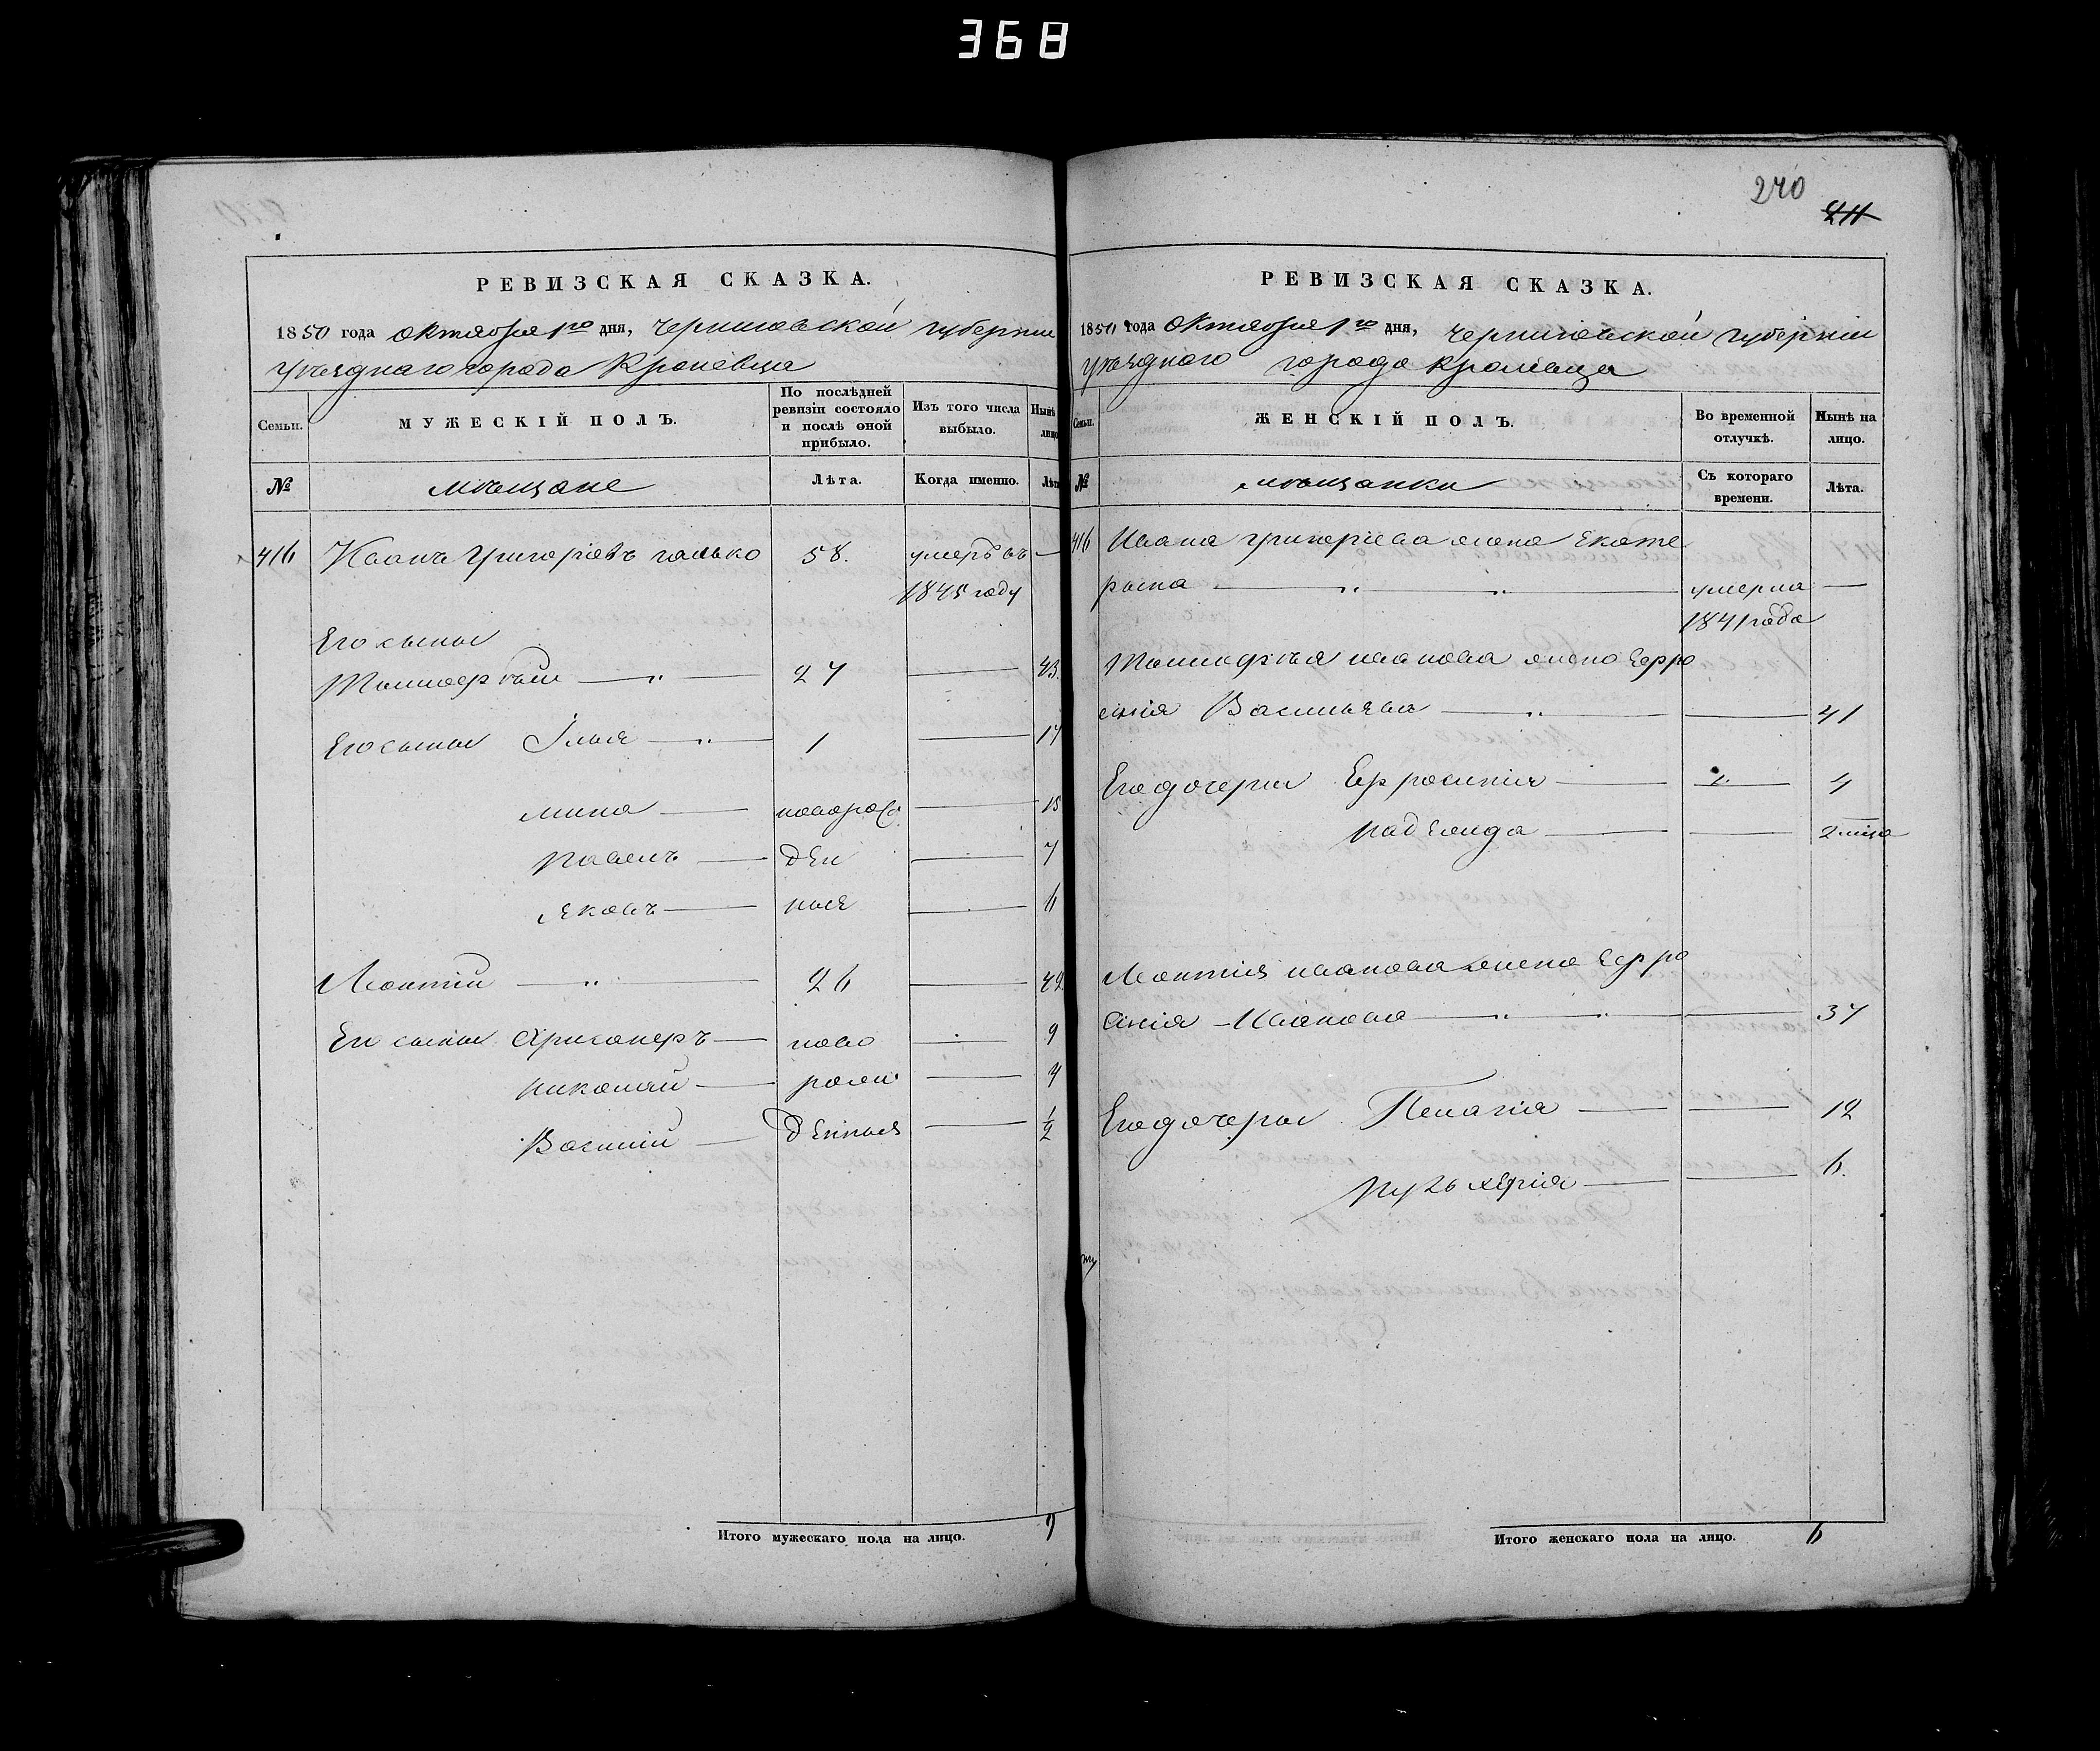 368
РЕВИЗСКАЯ СКАЗКА.
1850 года октября 1го дня, Черниговской губернии
уѣзднаго города Кролевца
Семьи.
МУЖЕСКІЙ ПОЛЪ.
По послѣдней ревизіи состояло и послѣ оной прибыло.
Изъ того числа выбыло.
Нынѣ лицо
№
мѣщане
Лѣта.
Когда именно.
Лѣта
416 Иванъ Григорьевъ 58. умеръ въ —
1845 году
Его сыны
Тимофей — „ — 27 — 43.
Его сыны Илья — „ — 1 — 17
Мина — новорож — 15
Павелъ — ден — 7
Яковъ — ные — 6
Леонтий — „ — 26 — 42
Его сыны — ново — 9
Николай — рожд — 4
Василий — денные — 1/2
Итого мужескаго пола на лицо. 9
240
211
РЕВИЗСКАЯ СКАЗКА.
1850 года октября 1го дня, Черниговской губерніи
уѣзднаго города Кролевца
Семьи.
ЖЕНСКІЙ ПОЛЪ.
Во временной отлучкѣ.
Нынѣ на лицо.
№
мѣщанки
Съ котораго времени.
Лѣта.
416 Ивана Григорьева жена Екате
рина — „ — „ — умерла —
1841 года
Тимофея Иванова жена Евфро
синія Васильева — „ — — 41
Его дочери Ефросинія — — 4
Надежда — — 2 мца
Леонтия Иванова жена Евфро
синія Иванова — „ — „ — — 37
Его дочери Пелагія — — 12
Пульхерія — — 6.
Итого женскаго пола на лицо. 6